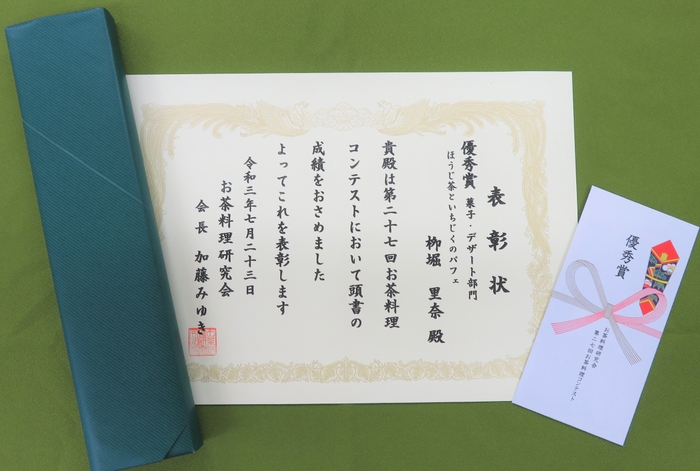 表彰状
優秀賞 菓子・デザート部門
ほうじ茶といちじくのパフェ
柳堀 里奈 殿
貴殿は第二十七回お茶料理
コンテストにおいて頭書の
成績をおさめました
よってこれを表彰します
令和三年七月二十三日
お茶料理研究会
会長 加藤みゆき
優秀賞
お茶料理研究会
第二七回お茶料理コンテスト